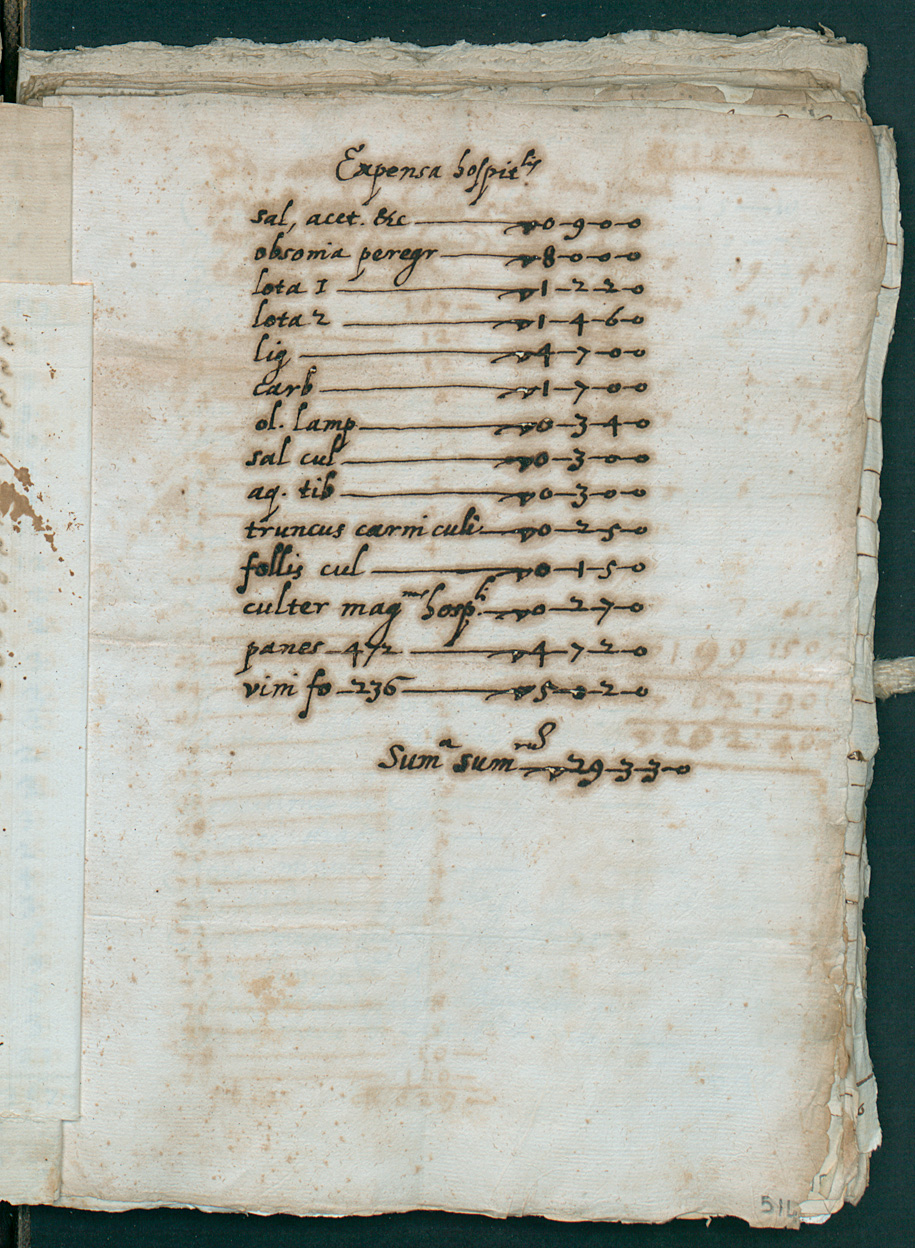 Expensa hospit^lis
sal, acet. &c — ▽0-9-0-0
obsonia peregr — ▽8-0-0-0
lota 1 — ▽1-2-2-0
lota 2 — ▽1-4-6-0
lig — ▽4-7-0-0
carb — ▽1-7-0-0
ol. lamp — ▽0-3-4-0
sal cul — ▽0-3-0-0
aq. tib — ▽0-3-0-0
truncus carni culi — ▽0-2-5-0
follis cul — ▽0-1-5-0
culter mag^nus hosp^li — ▽0-2-7-0
panes 472 — ▽4-7-2-0
vini fo 236 — ▽5-0-2-0
Sum^a sum — ▽29-3-3-0
511